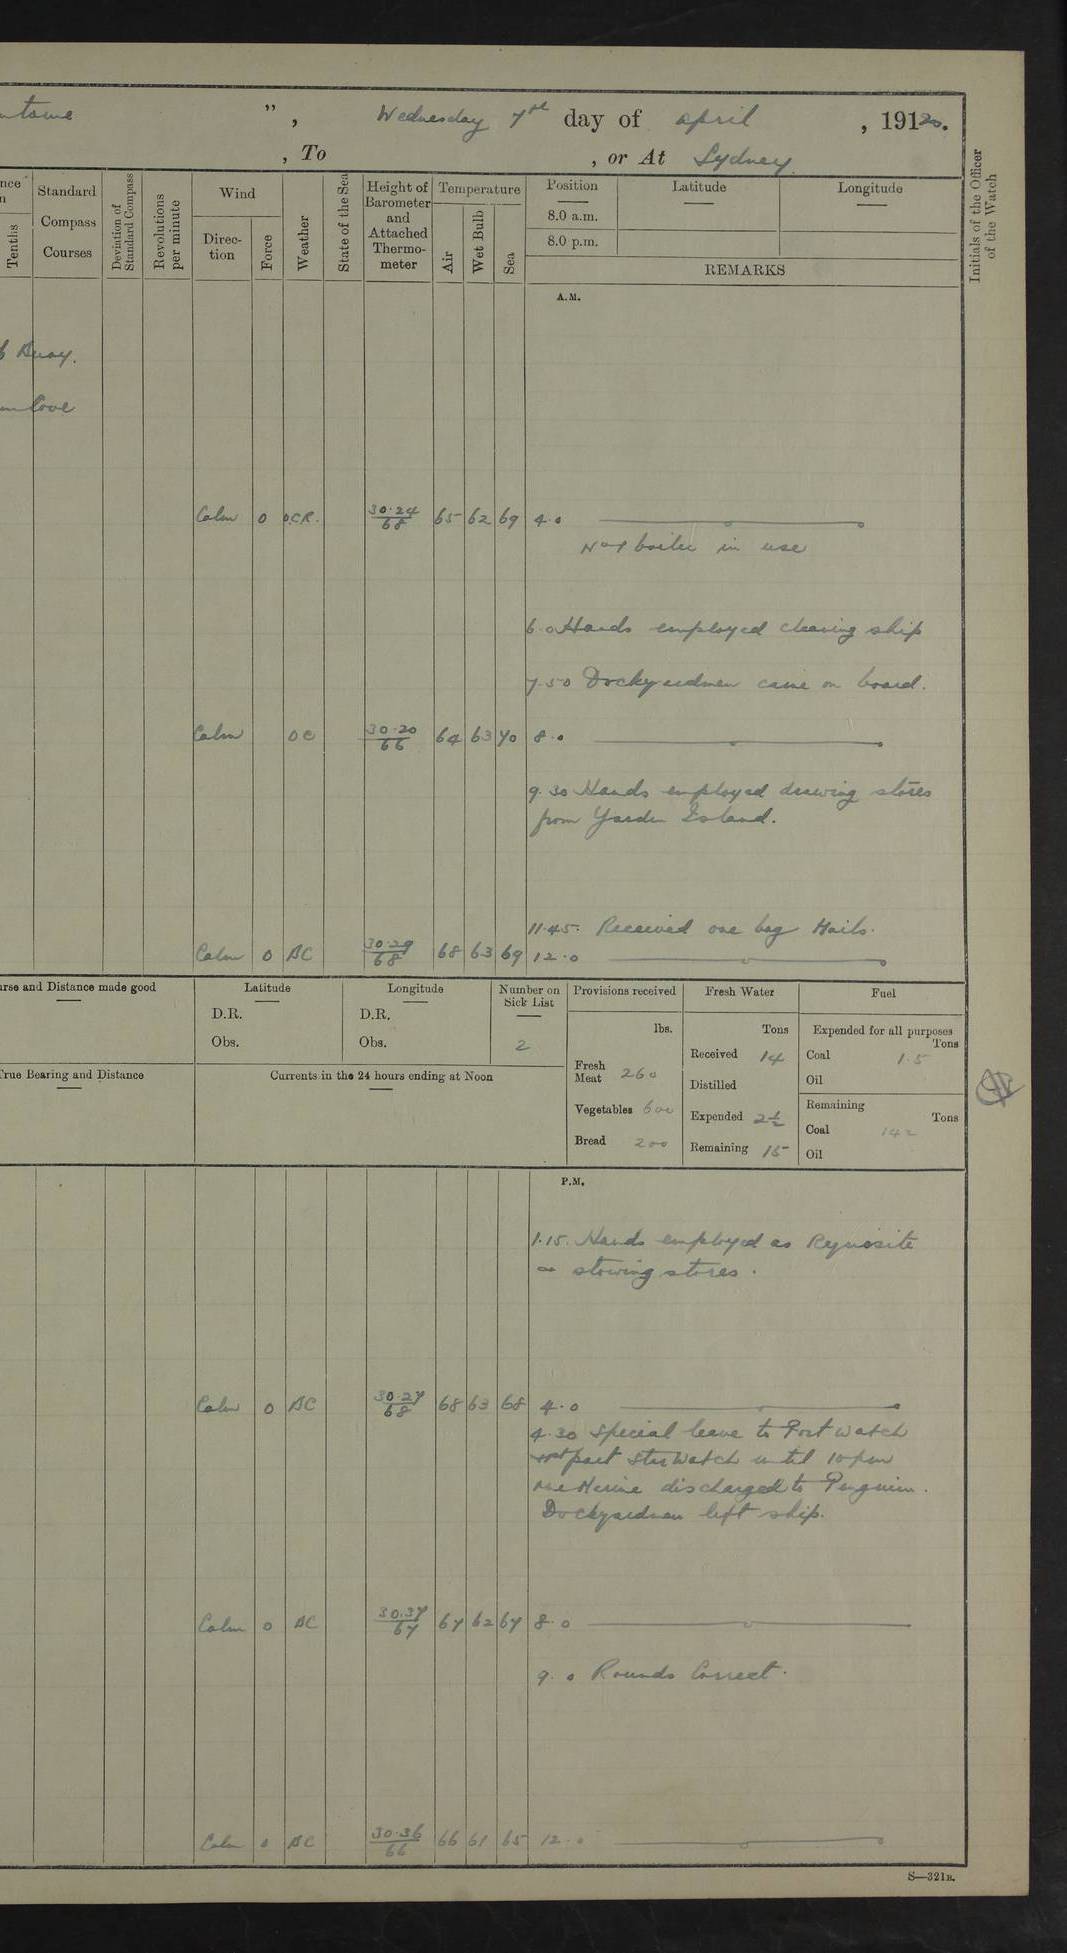 ", Wednesday 7th day of April, 1920.
, To , or At Sydney
Standard Compass Courses
Tenths
Deviation of Standard Compass
Revolutions per minute
Wind
Direction
Force
Weather
State of the Sea
Height of Barometer and Attached Thermometer
Temperature
Air
Wet Bulb
Sea
Position
8.0 a.m.
8.0 p.m.
Latitude
Longitude
REMARKS
Initials of the Officer of the Watch
A.M.
Buoy.
Cove
Calm 0 OCR. 30.24/68 65 62 69 4.0
No 1 boiler in use
6.0 Hands employed cleaning ship
7.50 Dockyardmen came on board.
Calm OC 30.20/66 64 63 70 8.0
9.30 Hands employed drawing stores
from Garden Island.
11.45. Received one bag Mails.
Calm 0 BC 30.29/68 68 63 69 12.0
Course and Distance made good
Latitude
D.R.
Obs.
Longitude
D.R.
Obs.
Number on Sick List
2
True Bearing and Distance
Currents in the 24 hours ending at Noon
Provisions received
lbs.
Fresh Meat 260
Vegetables 600
Bread 200
Fresh Water
Tons
Received 14
Distilled
Expended 2½
Remaining 15
Fuel
Expended for all purposes
Tons
Coal 1.5
Oil
Remaining
Tons
Coal 142
Oil
P.M.
1.15. Hands employed as Requisite
& stowing stores.
Calm 0 BC 30.27/68 68 63 68 4.0
4.30 Special leave to Port Watch
1st part Stbd Watch until 10 pm
One Marine discharged to Penguin.
Dockyardmen left ship.
Calm 0 BC 30.37/67 67 62 67 8.0
9.0 Rounds Correct.
Calm 0 BC 30.36/66 66 61 65 12.0
S—321B.